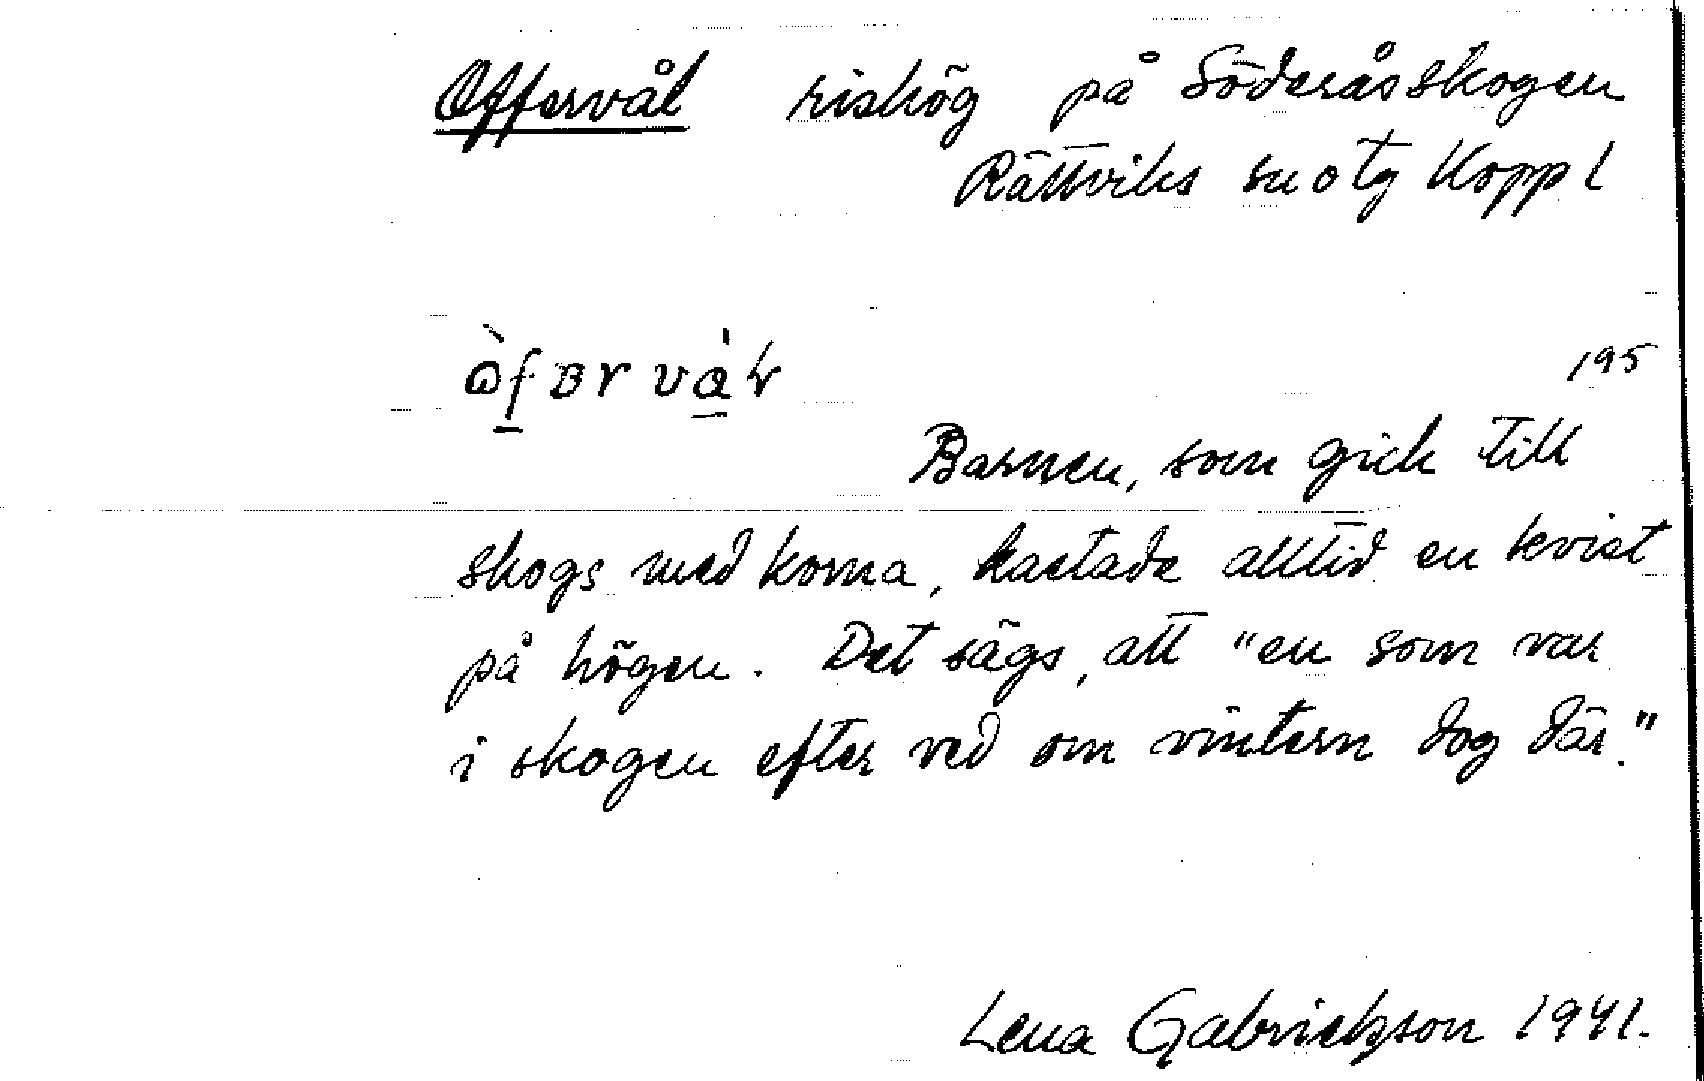 Offervål rishög på Söderåsskogen
Rättviks sn o tg Kopp l
195
Barnen, som gick till
skogs med korna, kastade alltid en kvist
på högen. Det sägs, att "en som var
i skogen efter ved om vintern dog där."
Lena Gabrielsson 1941.